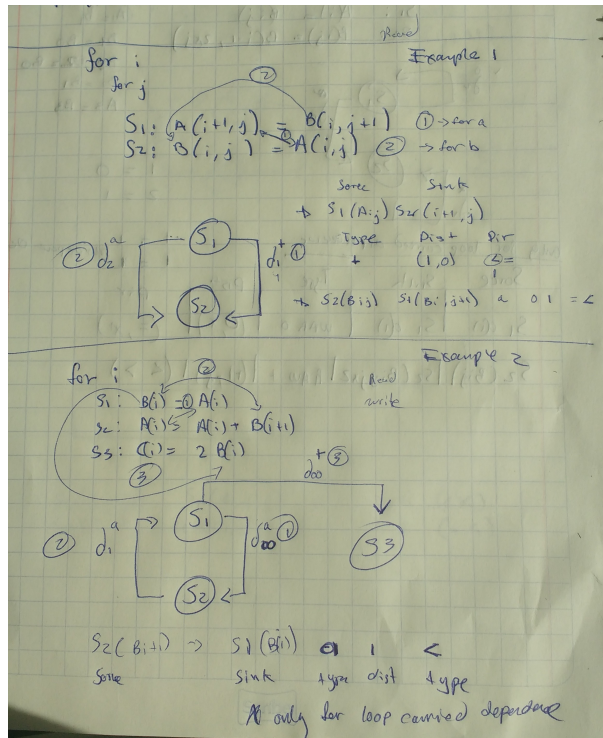 Read
for i
Example 1
for j
②
S1: A(i+1,j) = B(i,j+1) ① → for a
①
S2: B(i,j) = A(i,j) ② → for b
Sorce Sink
→ S1(Aij) S2(i+1,j)
Type Dist Dir
② d2^a S1 d1^t ①
t (1,0)
S2
→ S2(Bij) S1(Bi,j+1) a 0 1 = <
Example 2
for i ② Read write
S1: B(i) = ① A(i)
S2: A(i) = A(i) + B(i+1)
S3: C(i) = 2 B(i)
③
d∞^t ③
② d1^a S1 d∞^a ① S3
S2
S2(Bi+1) → S1(B(i)) a 1 <
Sorce Sink type dist type
only for loop carried dependence